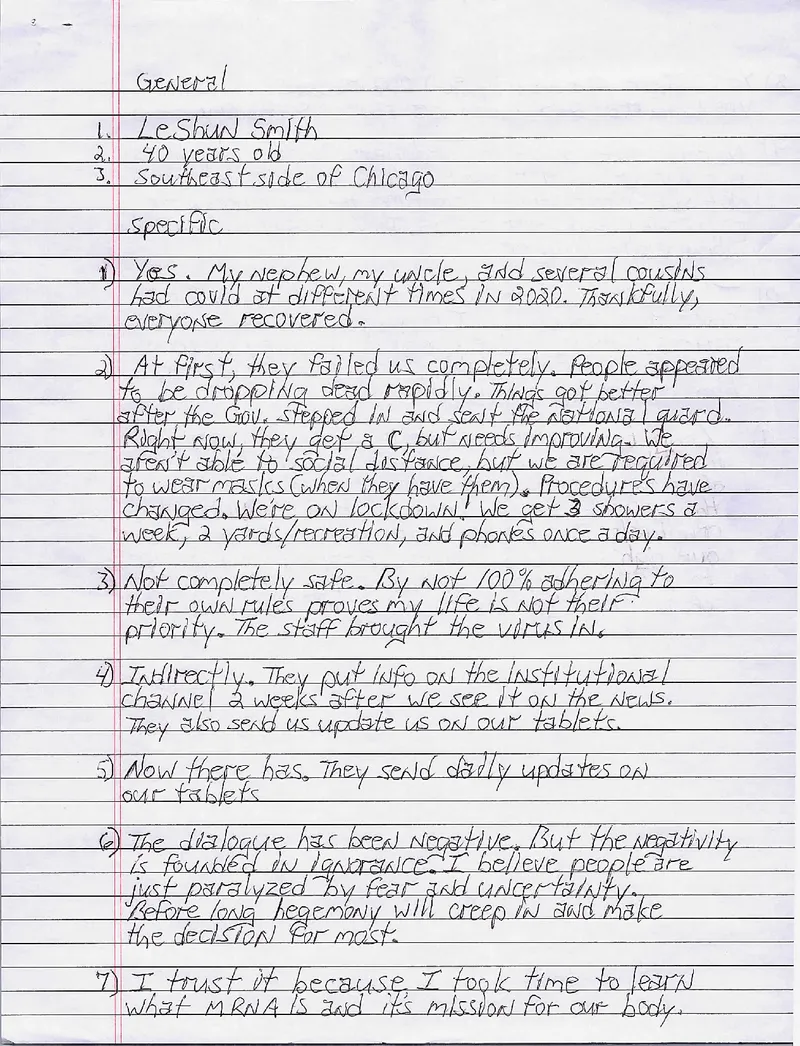 General
1. LeShun Smith
2. 40 years old
3. Southeast side of Chicago
Specific
1) Yes. My nephew, my uncle, and several cousins
had covid at different times in 2020. Thankfully,
everyone recovered.
2) At first, they failed us completely. People appeared
to be dropping dead rapidly. Things got better
after the Gov. stepped in and sent the national guard.
Right now, they get a C, but needs improving. We
aren't able to social distance, but we are required
to wear masks (when they have them). Procedures have
changed. We're on lockdown! We get 3 showers a
week, 2 yards/recreation, and phones once a day.
3) Not completely safe. By not 100% adhering to
their own rules proves my life is not their
priority. The staff brought the virus in.
4) Indirectly. They put info on the institutional
channel 2 weeks after we see it on the news.
They also send us update us on our tablets.
5) Now there has. They send daily updates on
our tablets
6) The dialogue has been negative. But the negativity
is founded in ignorance. I believe people are
just paralyzed by fear and uncertainty.
Before long hegemony will creep in and make
the decision for most.
7) I trust it because I took time to learn
what MRNA is and it's mission for our body.